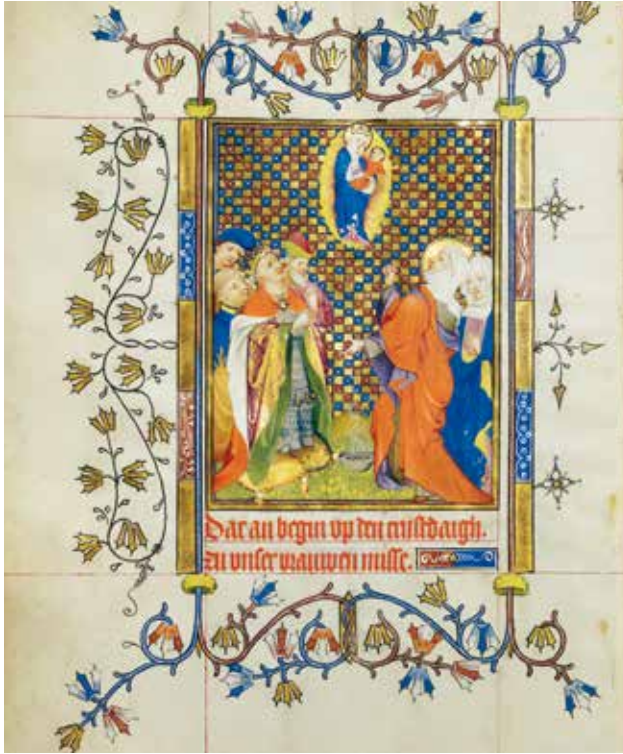 Dar an begin vp den cristdaigh.
zu unser vrauwen misse.